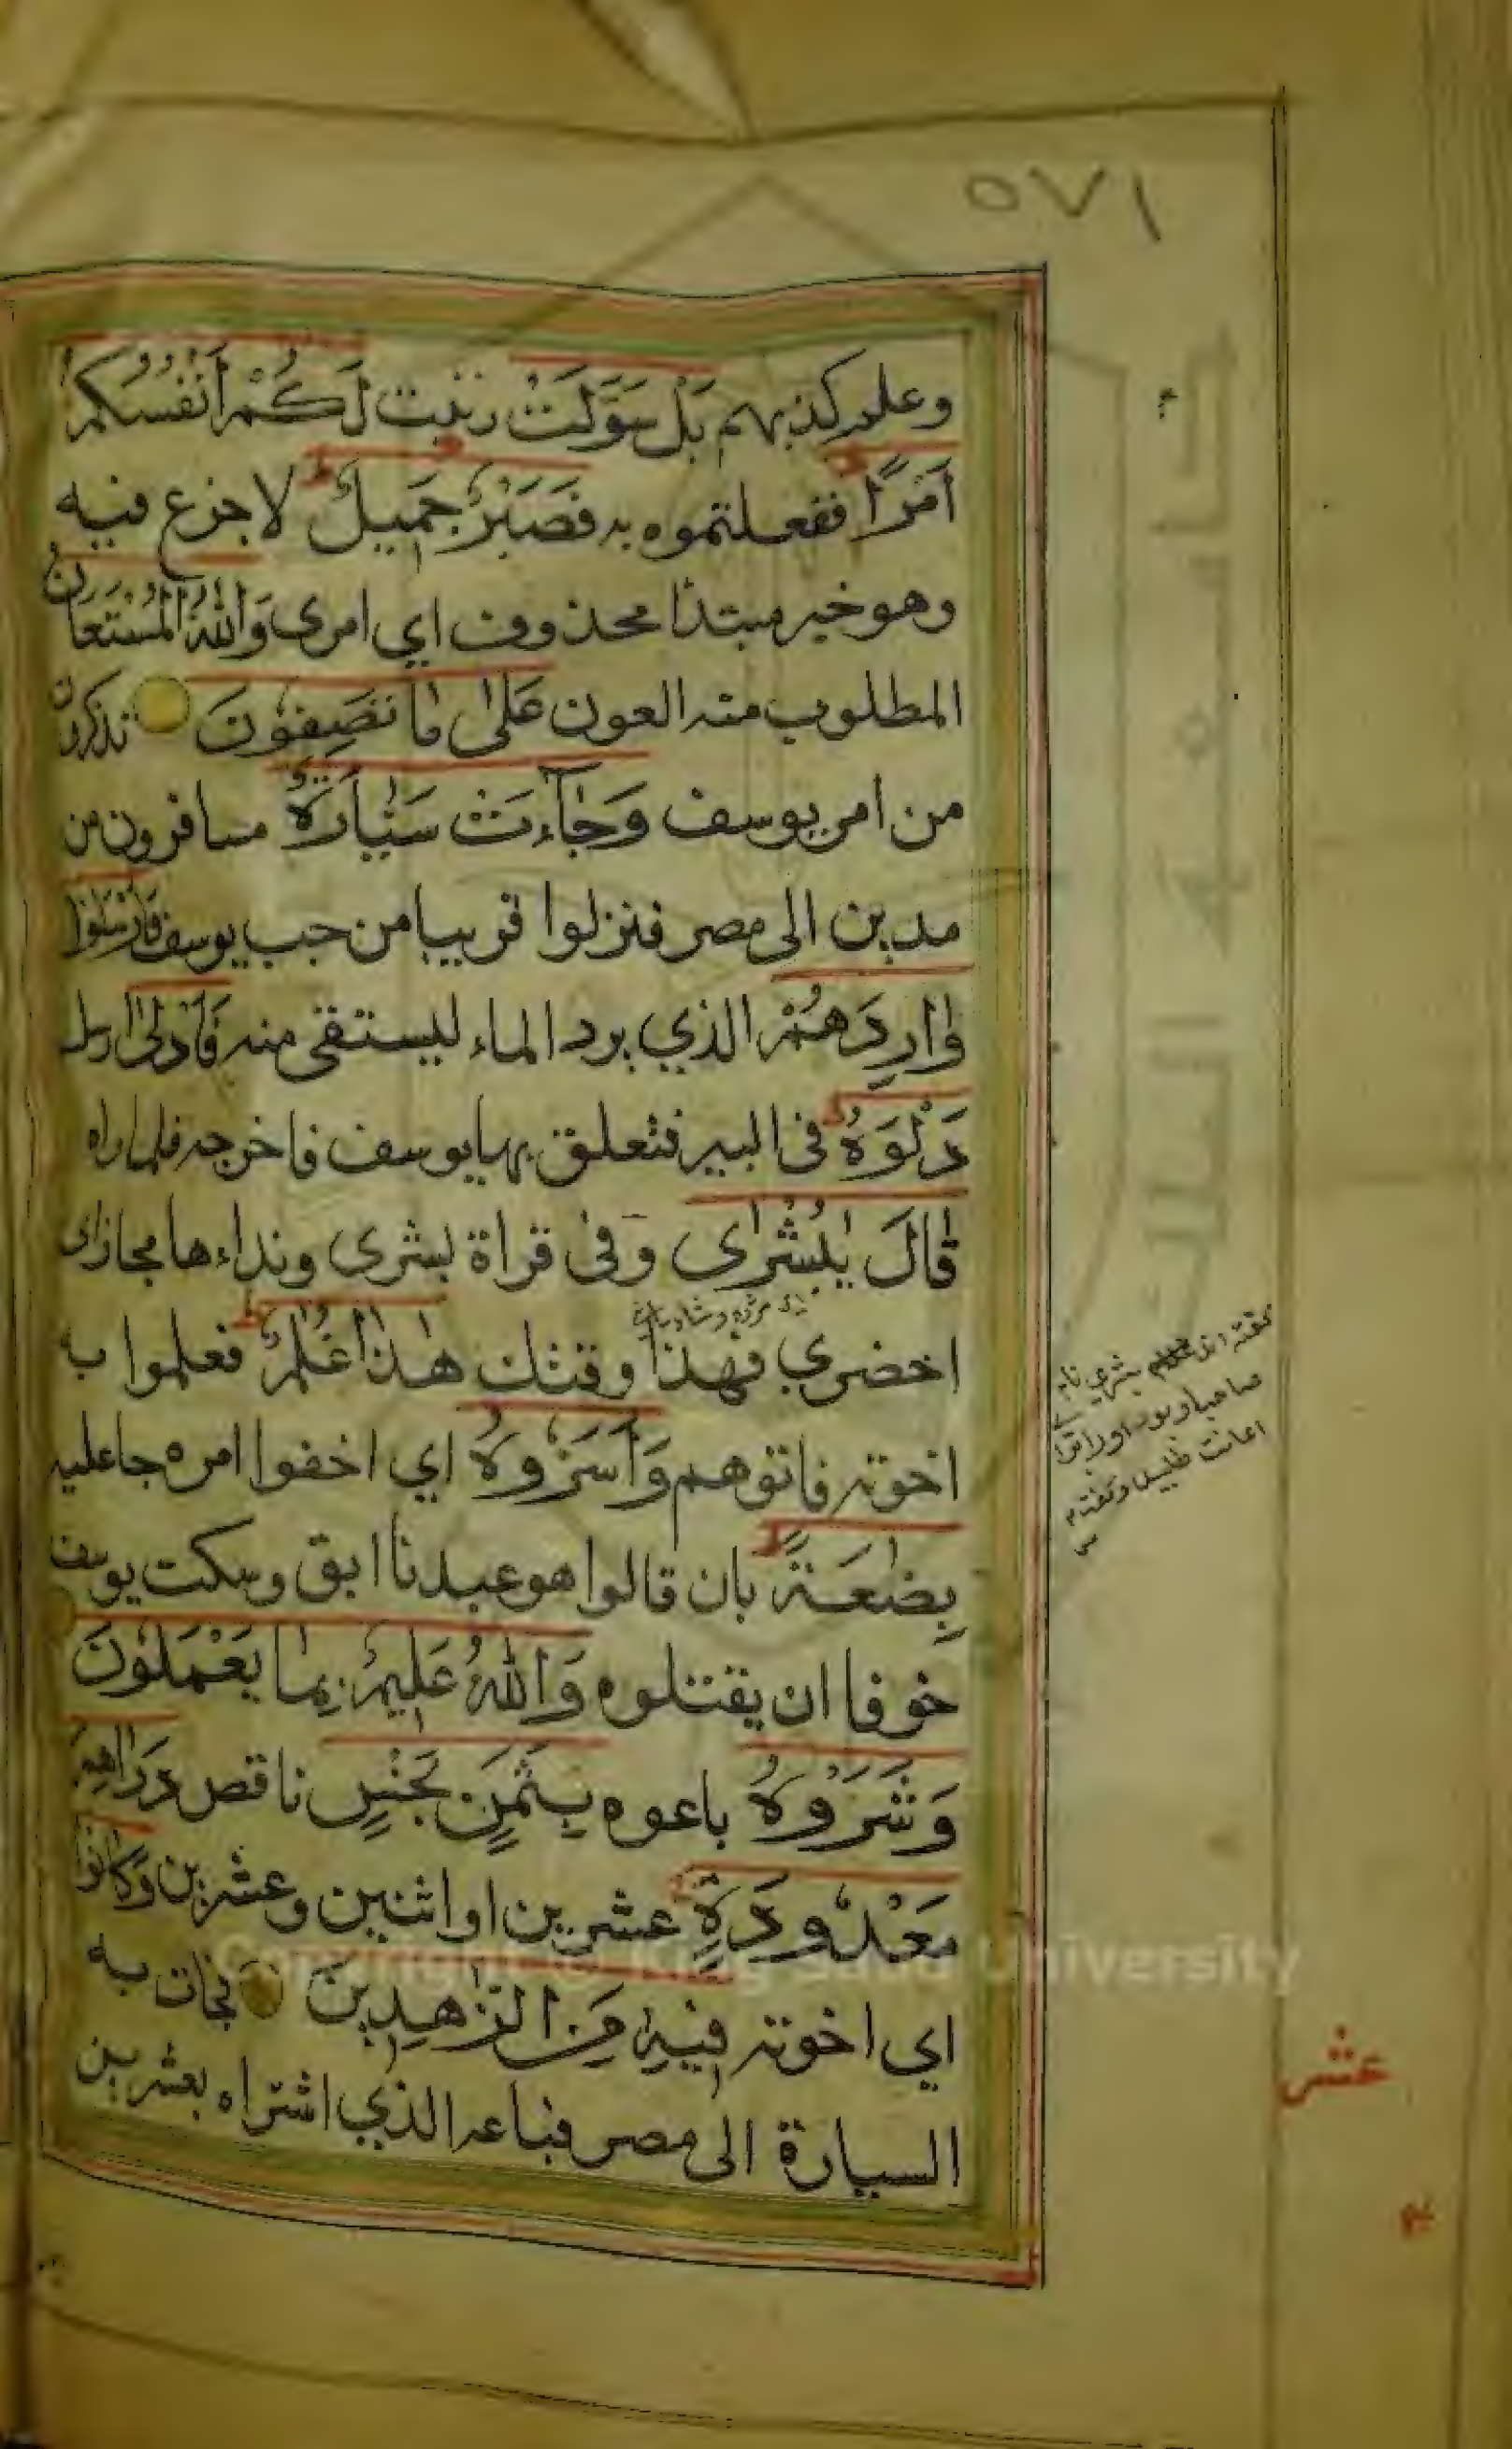 ٥٧١
وعلم كذبهم بَلْ سَوَّلَتْ زينت لَكُمْ أَنْفُسُكُمْ
اَمْرًا ففعلتموه به فَصَبْرٌ جَمِيلٌ لا جزع فيه
وهو خبر مبتدا محذوف اي امرى وَاللهُ الْمُسْتَعَانُ
المطلوب منه العون عَلٰى مَا تَصِفُونَ تذكرون
من امر يوسف وَجَآءَتْ سَيَّارَةٌ مسافرون من
مدين الى مصر فنزلوا قريبا من جب يوسف فَاَرْسَلُوْا
وَارِدَهُمْ الذي يرد الماء ليستقى منه فَاَدْلٰى ارسل
دَلْوَهُ فى البير فتعلق بها يوسف فاخرجه فلما راه
قَالَ يٰبُشْرٰى وفى قراة بشرى ونداءها مجاز اى
احضري فهذا وقتك هٰذَا غُلٰمٌ فعلموا به
اخوته فاتوهم وَاَسَرُّوهُ اي اخفوا امره جاعليه
بِضٰعَةً بان قالوا هو عبدنا ابق وسكت يوسف
خوفا ان يقتلوه وَاللهُ عَلِيمٌ بِمَا يَعْمَلُوْنَ
وَشَرَوْهُ باعوه بِثَمَنٍ بَخْسٍ ناقص دَرَاهِمَ
مَعْدُودَةٍ عشرين او اثنين وعشرين وَكَانُوْا
اي اخوته فِيهِ مِنَ الزّٰهِدِينَ فجات به
السيارة الى مصر فباعه الذي اشتراه بعشرين
بشري نام
صاحب او بود او را
اعانت طلبيد وگفت
عشر
Copyright © King Saud University